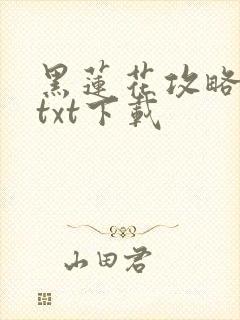 黑蓮花攻略
txt下載
山田君